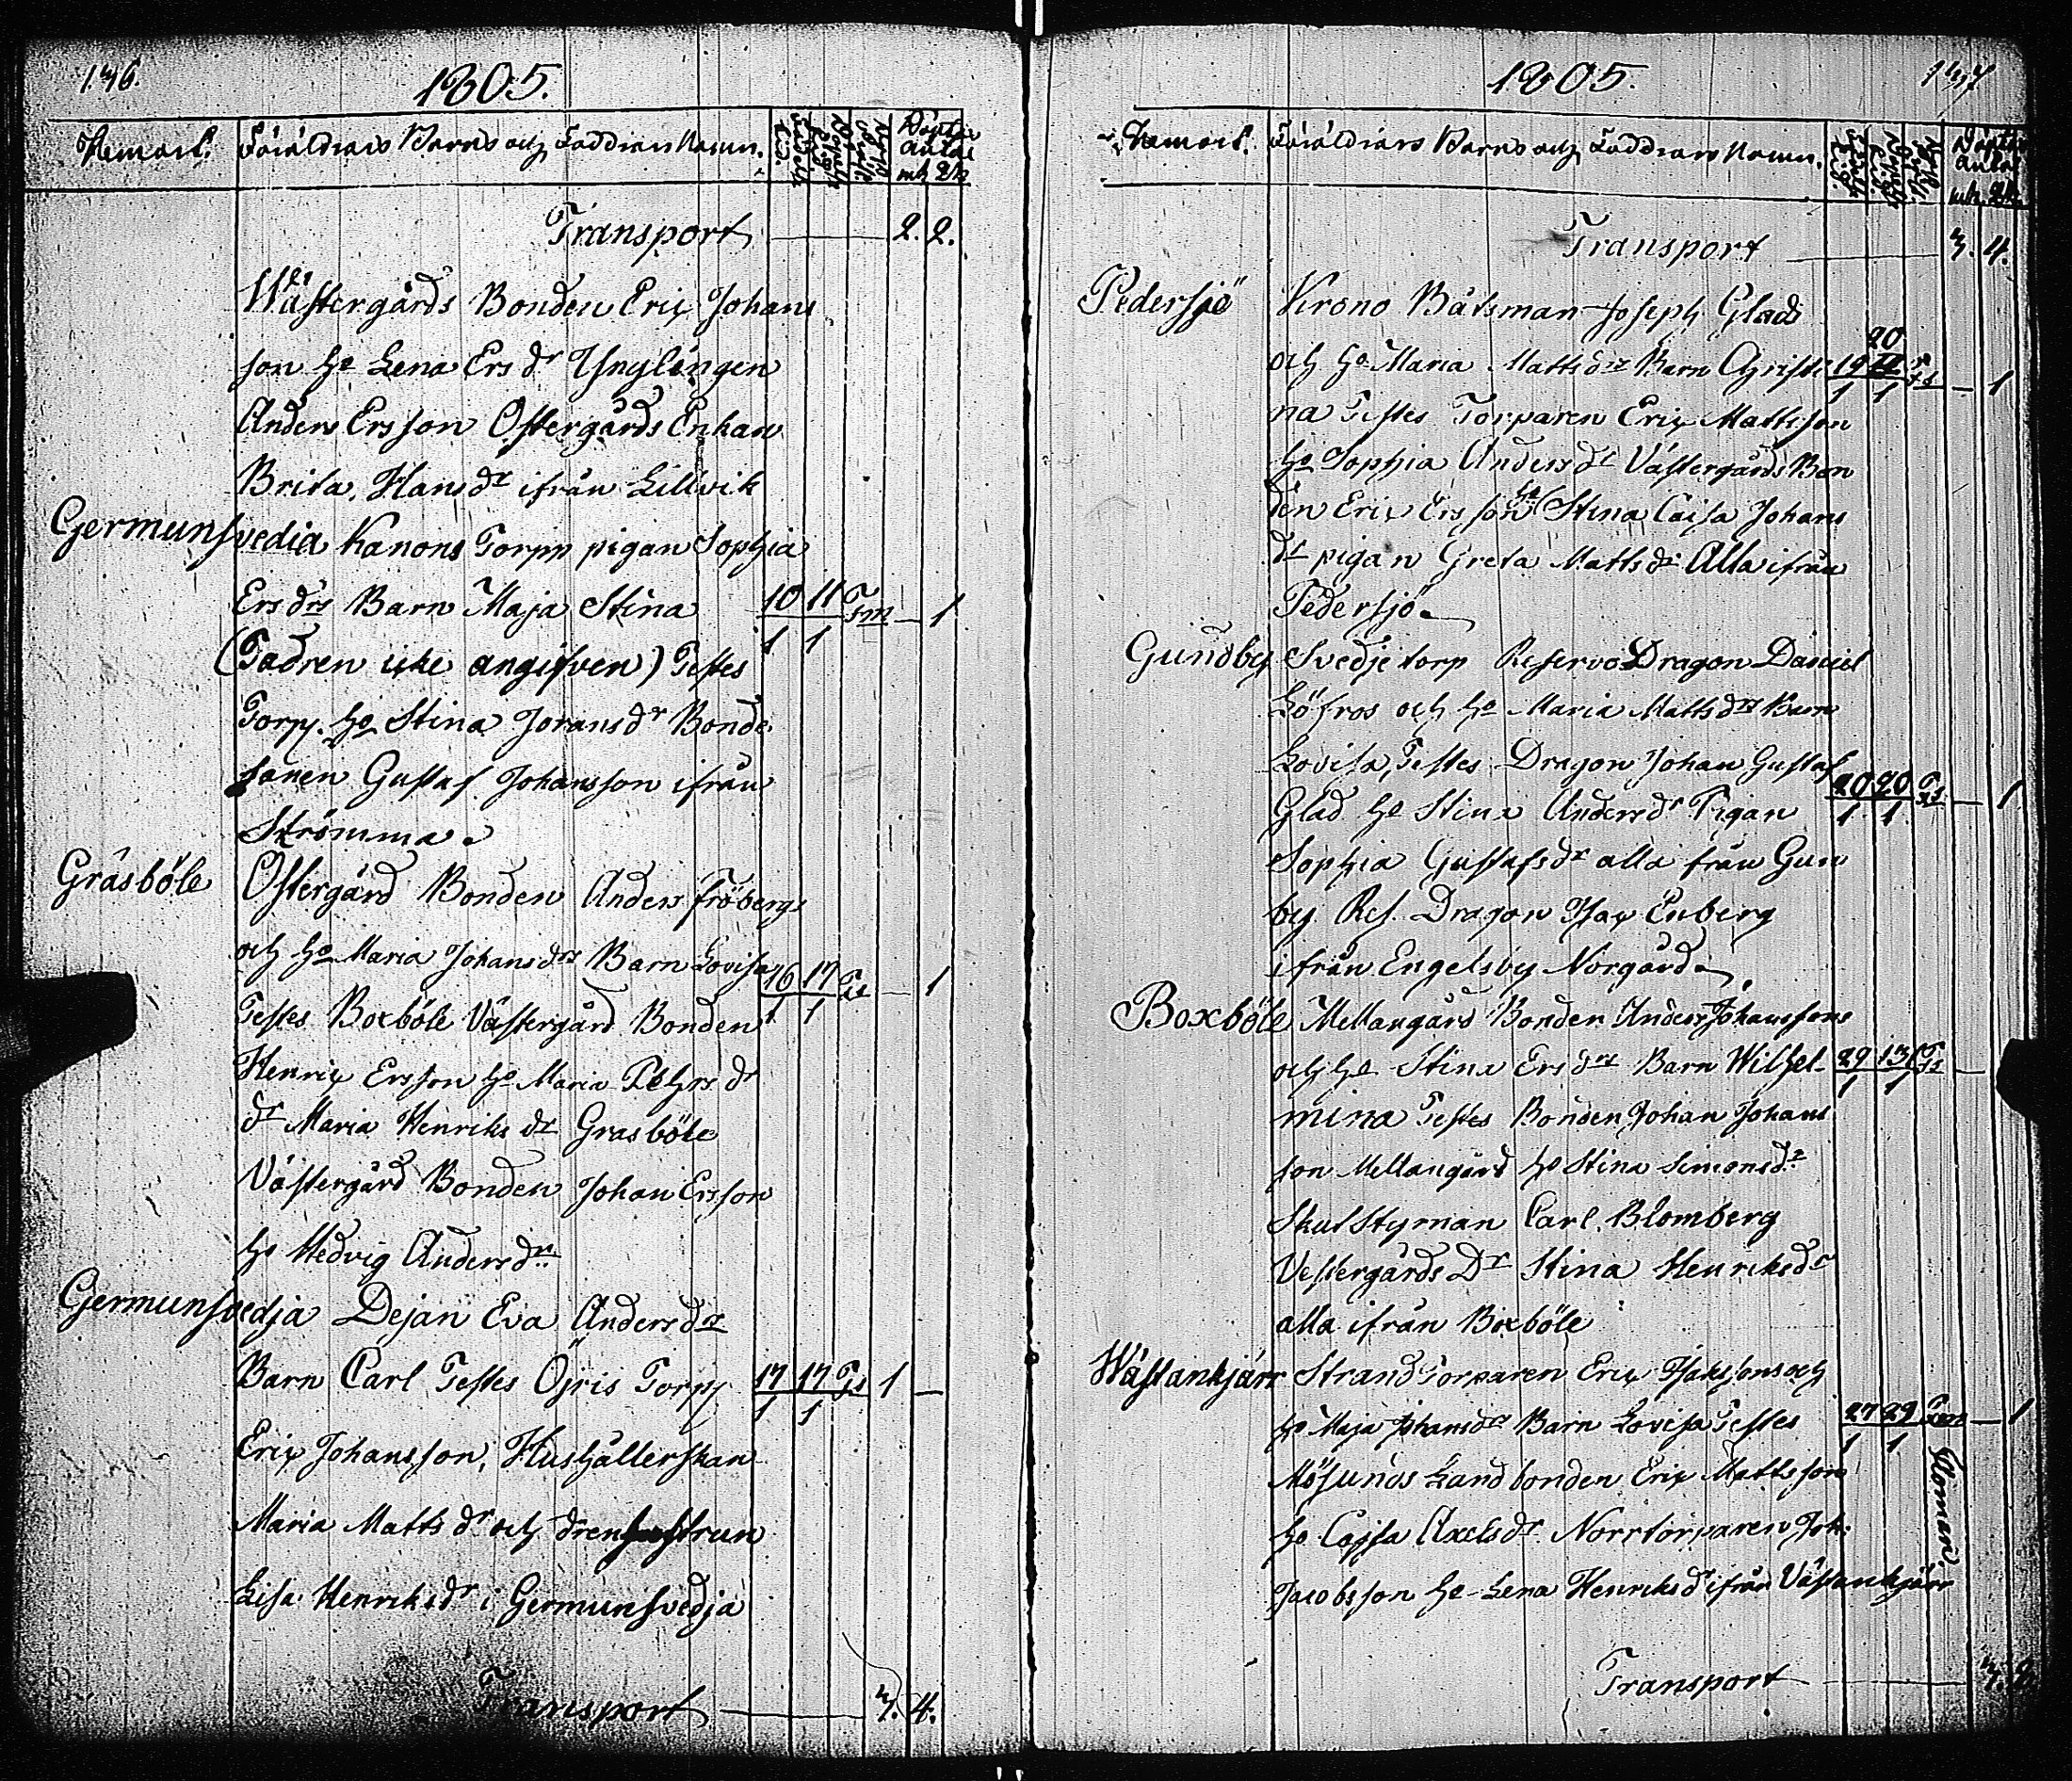 136.
1805.
Hemort. Föräldrars Barns och Faddrars Namn.
Döptas antal
mk qk
Transport 2. 2.
Wästergårds Bonden Eric Johans
son ho Lena Ersdr Ynglingen
Anders Ersson Östergårds Enkan
Brita Hansdr ifrån Lillvik
Germunsvedia Kanons Torpp pigan Sophia
Ersdrs Barn Maja Stina 10 11 1
1 1
(Fadren icke angifven) Testes
Torpp. ho Stina Joransdr Bonde
sonen Gustaf Johansson ifrån
Strömma.
Gräsböle Östergård Bonden Anders Fröbergs
och ho Maria Johansdrs Barn Lovisa 16 17 1
Testes Boxböle Västergård Bonden 1 1
Henric Ersson ho Maria Pehrsdr
dr Maria Henriksdr Gräsböle
Västergård Bonden Johan Ersson
ho Hedvig Andersdr
Germunsvedja Dejan Eva Andersdrs
Barn Carl Testes Öjris Torpp 17 17 1 —
1 1
Eric Johansson, Hushållerskan
Maria Mattsdr och drengshustrun
Lisa Henriksdr i Germunsvedja
Transport 3. 4.
1805.
137
Hemort. Föräldrars Barns och Faddrars Namn.
Döptas antal
mk. qk.
Transport 3. 4.
Pedersjö Krono Båtsman Joseph Glads
20
och ho Maria Mattsdrs Barn Christi 19 1
1 1
na Testes Torparen Eric Mattsson
ho Sophia Andersdr Västergårds Bon
den Eric Ersson ho Stina Caisa Johans
dr pigan Greta Mattsdr Alla ifrån
Pedersjö
Gundby Svedjetorp Reservo Dragon Daniel
Löfros och ho Maria Mattsdrs Barn
Lovisa, Testes Dragon Johan Gustaf
Glad ho Stina Andersdr Pigan 20 20 1
1 1
Sophia Gustafsdr alla från Gun
by Res. Dragon Isac Enberg
ifrån Engelsby Norgård
Boxböle Mellangård Bonden Anders Johanssons
och ho Stina Ersdrs Barn Wilhel-
1 1
mina Testes Bonden Johan Johans
son Mellangård ho Stina Simonsdr
Skutstyrman Carl Blomberg
Vestergårds Dr Stina Henriksdr
alla ifrån Boxböle
Wästankjärr Strand Torparen Eric Isakssons och
ho Maja Johansdrs Barn Lovisa Testes 27 29 1
1 1
Mösunds Landbonden Eric Mattsson
ho Cajsa Axelsdr Norrtorparen Joh:
Jacobsson ho Lena Henriksdr ifrån Västankjärr
Transport